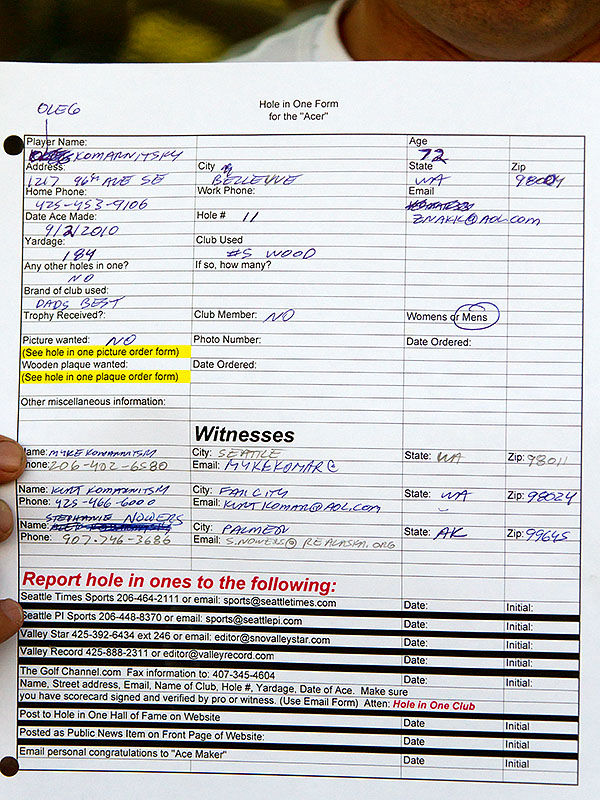 Hole in One Form
for the "Acer"
OLEG
Player Name: KOMARNITSKY Age 72
Address: 1217 96th AVE SE City BELLEVUE State WA Zip 98004
Home Phone: 425-453-9106 Work Phone: Email ZNAKK@AOL.COM
Date Ace Made: 9/2/2010 Hole # 11
Yardage: 184 Club Used #5 WOOD
Any other holes in one? NO If so, how many?
Brand of club used: DADS BEST
Trophy Received?: Club Member: NO Womens or Mens
Picture wanted: NO Photo Number: Date Ordered:
(See hole in one picture order form)
Wooden plaque wanted: Date Ordered:
(See hole in one plaque order form)
Other miscellaneous information:
Witnesses
Name: MYKE KOMARNITSKY City: SEATTLE State: WA Zip: 98011
Phone: 206-402-6580 Email: MYKEKOMAR@
Name: KURT KOMARNITSKY City: FALL CITY State: WA Zip: 98024
Phone: 425-466-6000 Email: KURTKOMAR@AOL.COM
STEPHANIE NOWERS
Name: City: PALMER State: AK Zip: 99645
Phone: 907-746-3686 Email: S.NOWERS@REALASKA.ORG
Report hole in ones to the following:
Seattle Times Sports 206-464-2111 or email: sports@seattletimes.com Date: Initial:
Seattle PI Sports 206-448-8370 or email: sports@seattlepi.com Date: Initial:
Valley Star 425-392-6434 ext 246 or email: editor@snovalleystar.com Date: Initial:
Valley Record 425-888-2311 or editor@valleyrecord.com Date: Initial:
The Golf Channel.com Fax information to: 407-345-4604 Date: Initial:
Name, Street address, Email, Name of Club, Hole #, Yardage, Date of Ace. Make sure
you have scorecard signed and verified by pro or witness. (Use Email Form) Atten: Hole in One Club
Post to Hole in One Hall of Fame on Website Date Initial
Posted as Public News Item on Front Page of Website: Date Initial
Email personal congratulations to "Ace Maker" Date Initial